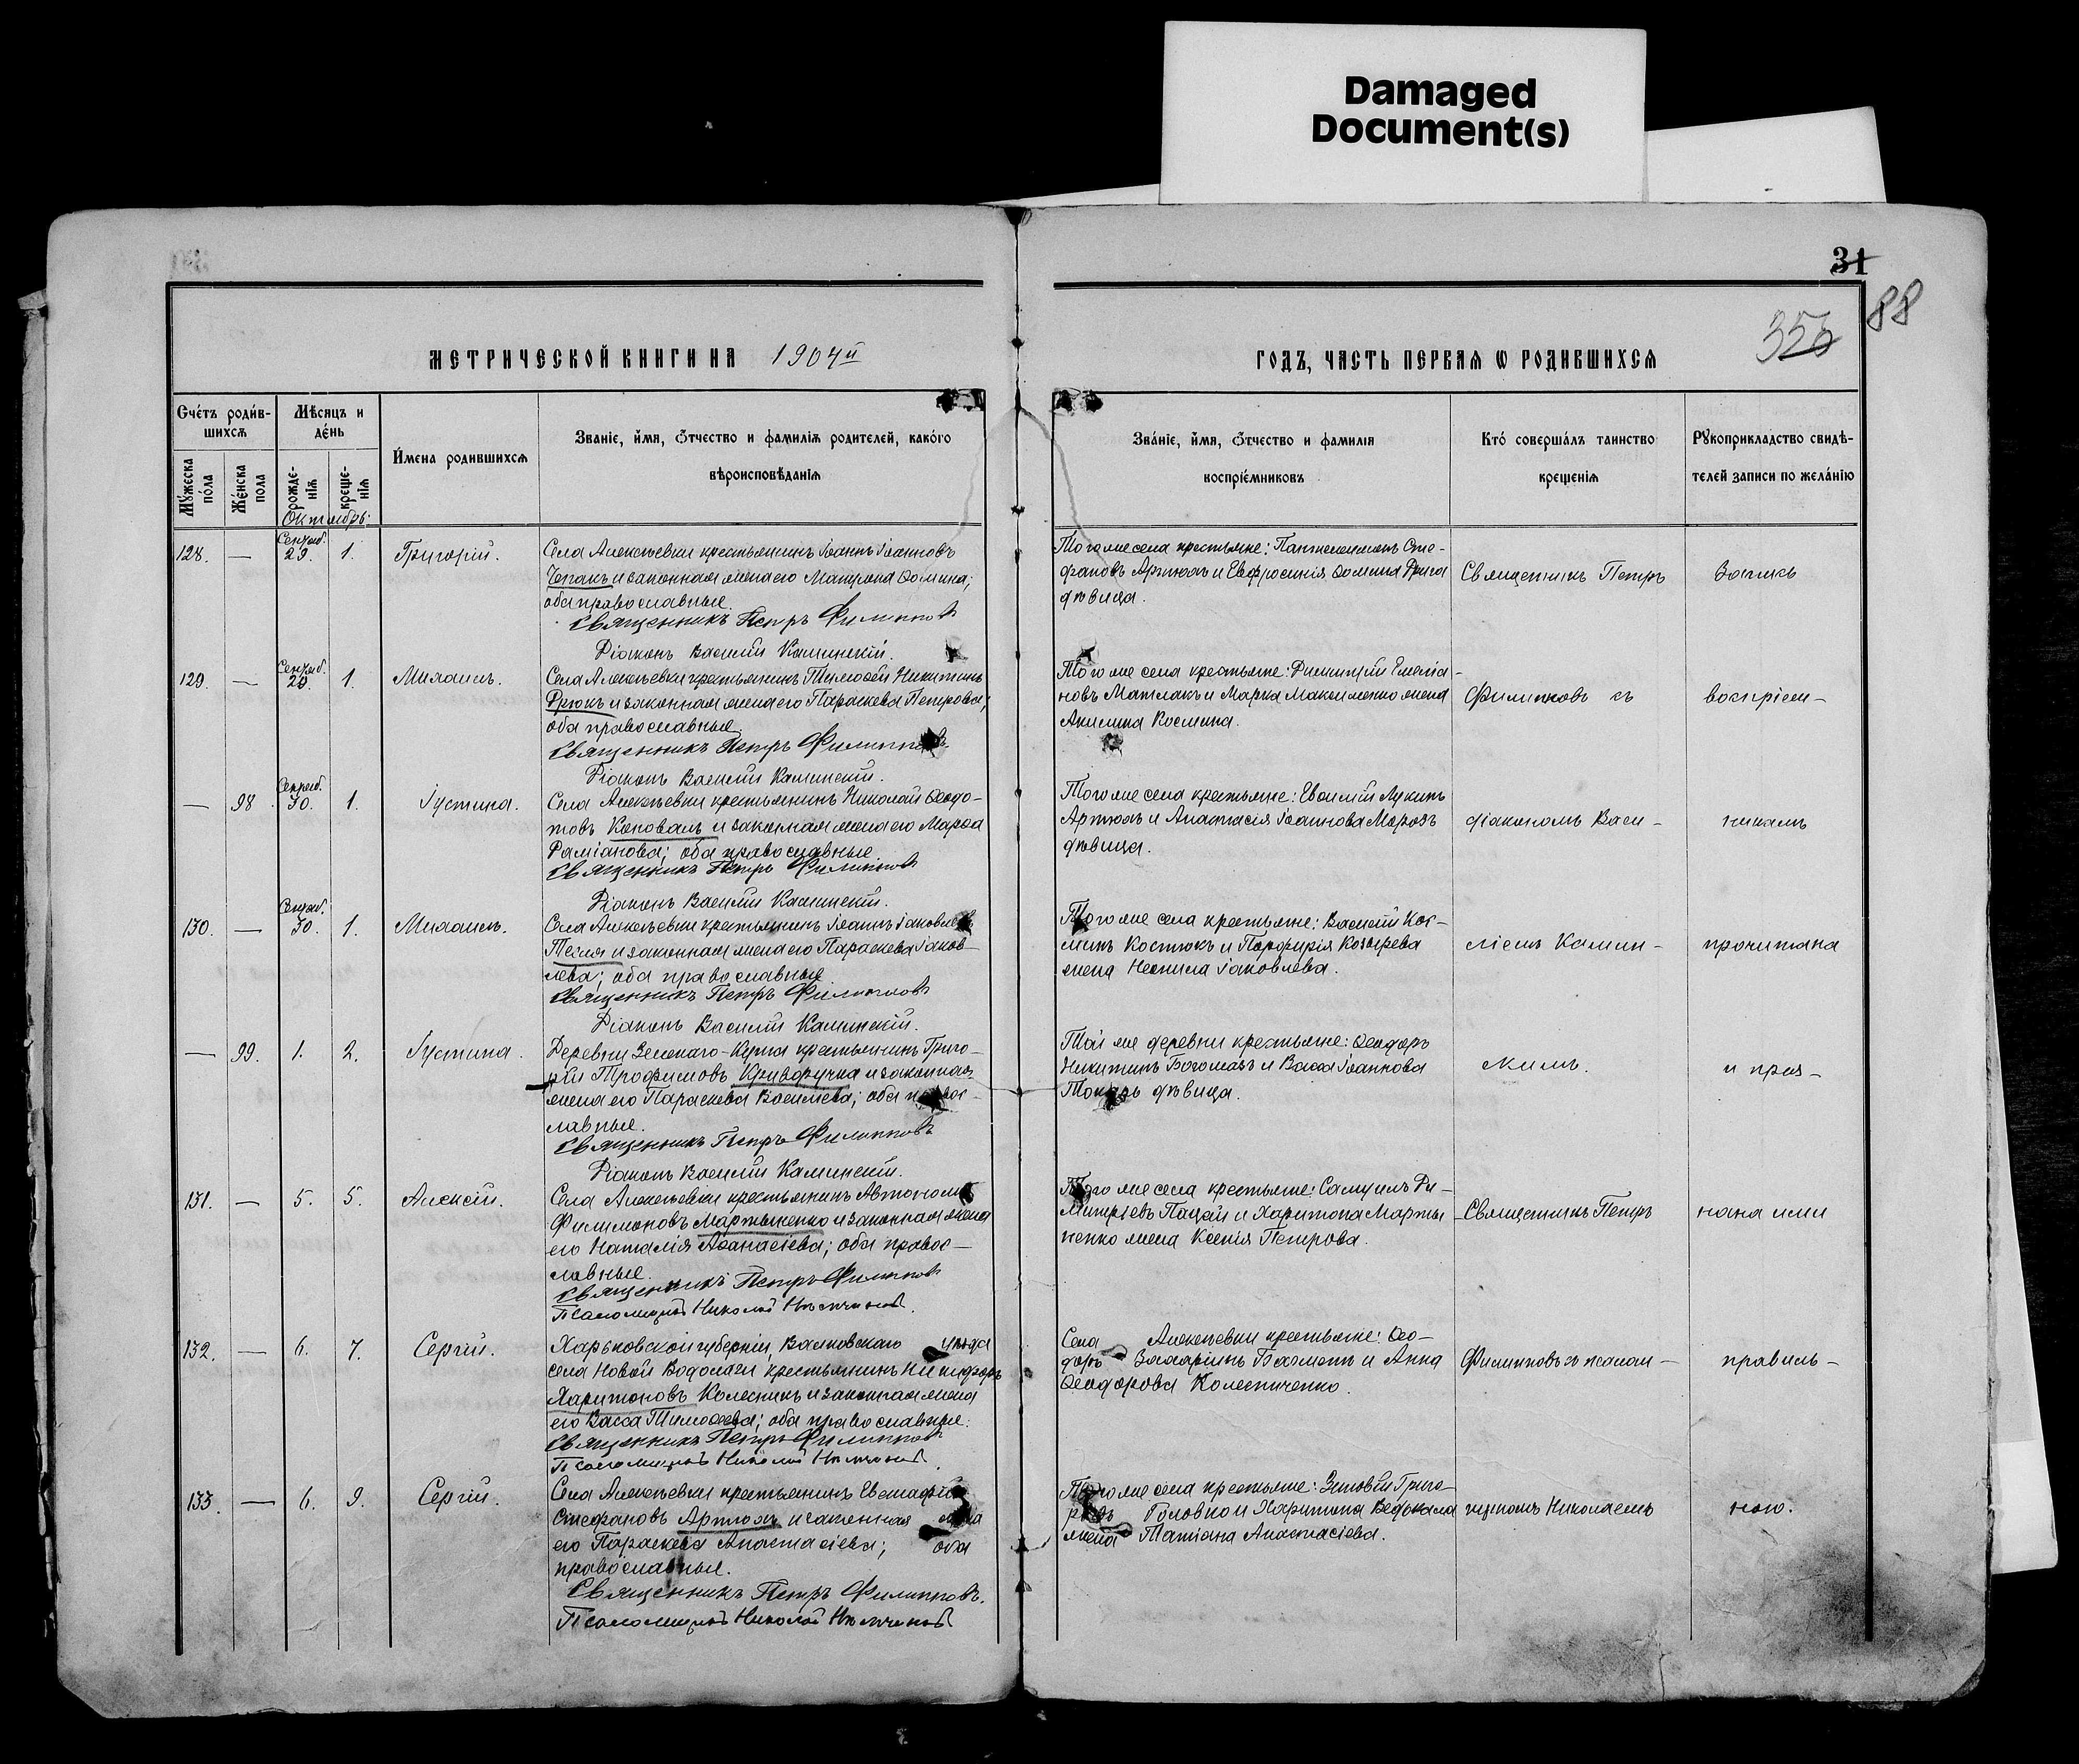 Damaged
Document(s)
31
88
МЕТРИЧЕСКОЙ КНИГИ НА 1904й
ГОДЪ, ЧАСТЬ ПЕРВАЯ Ѡ РОДИВШИХСЯ
Счетъ родив-
шихся
Мѣсяцъ и
день
Имена родившихся
Званіе, имя, Отчество и фамилія родителей, какого
вѣроисповѣданія
Мужеска
пола
Женска
пола
рожде-
нія
креще-
нія
Октябрь.
Званіе, имя, Отчество и фамилія
воспріемниковъ
Кто совершалъ таинство
крещенія
Рукоприкладство свидѣ-
телей записи по желанію
128. — Сентяб. 29. 1. Григорій.
Села Алексѣевки крестьянинъ Іоаннъ Іоанновъ
и законная жена его Матрона Ѳомина;
оба православные.
Священникъ Петръ Филипповъ
Діаконъ Василій Каминскій.
Того же села крестьяне: Пантелеимонъ Сте-
фановъ Артюхъ и Евфросинія Ѳомина
дѣвица.
Священникъ Петръ
129. — Сентяб. 29. 1. Михаилъ.
Села Алексѣевки крестьянинъ Тимоѳей Никитинъ
и законная жена его Параскева Петрова;
оба православные.
Священникъ Петръ Филипповъ
Діаконъ Василій Каминскій.
Того же села крестьяне: Димитрій Емеліа-
новъ и Марка Максименко жена
Акилина Космина.
Филипповъ съ
воспріем-
— 98 Сентяб. 30. 1. Іустина.
Села Алексѣевки крестьянинъ Николай Ѳеодо-
товъ Коновалъ и законная жена его Марѳа
Даміанова; оба православные
Священникъ Петръ Филипповъ
Діаконъ Василій Каминскій.
Того же села крестьяне: Лукинъ
Артюхъ и Анастасія Іоаннова Морозъ
дѣвица.
діакономъ Васи-
никамъ
130. — Сентяб. 30. 1. Михаилъ.
Села Алексѣевки крестьянинъ Іоаннъ Іаковлевъ
Тесля и законная жена его Параскева Іаков-
лева; оба православные
Священникъ Петръ Филипповъ
Діаконъ Василій Каминскій.
Того же села крестьяне: Василій Кос-
минъ Костюкъ и Порфирія Козырева
жена Неонила Іаковлева.
ліемъ Камин-
прочитана
— 99. 1. 2. Іустина.
Деревни Зеленаго-Кута крестьянинъ Григо-
рій Трофимовъ Криворучка и законная
жена его Параскева Васильева; оба правос-
лавные.
Священникъ Петръ Филипповъ
Діаконъ Василій Каминскій.
Той же деревни крестьяне: Ѳеодоръ
Никитинъ Богомазъ и Васса Іоаннова
Токарь дѣвица.
скимъ.
и приз-
131. — 5. 5. Алексій.
Села Алексѣевки крестьянинъ Автономъ
Филимоновъ Мартыненко и законная жена
его Наталія Аѳанасіева; оба правос-
лавные.
Священникъ Петръ Филипповъ
Псаломщикъ Николай
Того же села крестьяне: Самуилъ Ди-
митріевъ Пацей и Харитона Марты
ненко жена Ксенія Петрова.
Священникъ Петръ
нана ими
132. — 6. 7. Сергій.
Харьковской губерніи, Валковскаго уѣзда
села Новой Водолаги крестьянинъ Никифоръ
Харитоновъ Колесникъ и законная жена
его Васса Тимоѳеева; оба православные.
Священникъ Петръ Филипповъ
Псаломщикъ Николай
Села Алексѣевки крестьяне: Ѳео-
доръ Захаринъ и Анна
Ѳеодорова Колесниченко.
Филипповъ съ псалом-
правиль-
133. — 6. 9. Сергій.
Села Алексѣевки крестьянинъ Евстафій
Стефановъ Артюхъ и законная жена
его Параскева Анастасіева; оба
православные.
Священникъ Петръ Филипповъ.
Псаломщикъ Николай
Того же села крестьяне: Зиновій Григо-
рьевъ Головко и Харитона
жена Татіана Анастасіева.
щикомъ Николаемъ
ною.